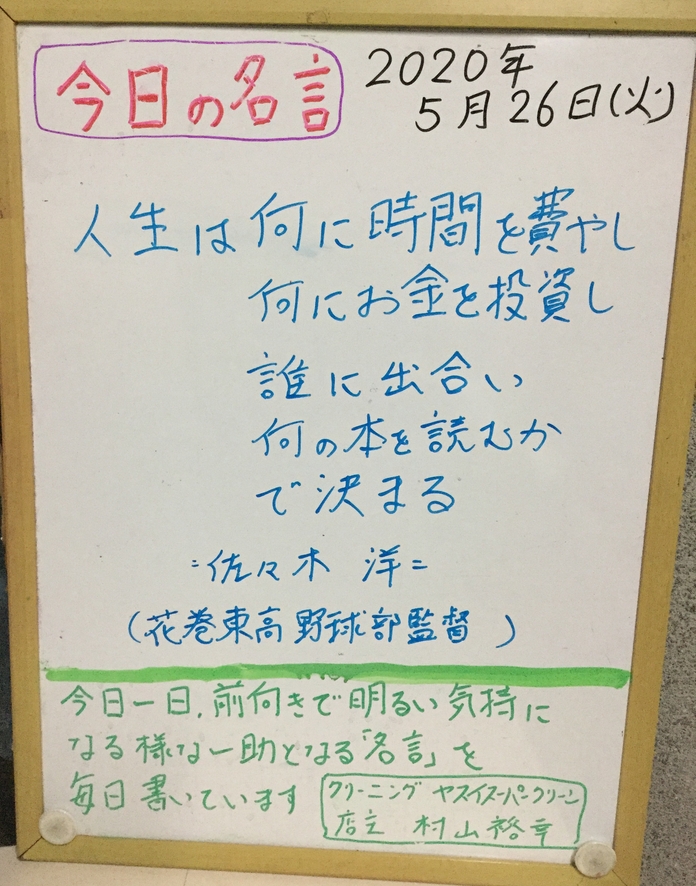 今日の名言
2020年
5月26日(火)
人生は何に時間を費やし
何にお金を投資し
誰に出合い
何の本を読むか
で決まる
=佐々木 洋=
(花巻東高野球部監督)
今日一日、前向きで明るい気持に
なる様な一助となる「名言」を
毎日書いています
クリーニング ヤスイスーパークリーン
店主 村山裕幸